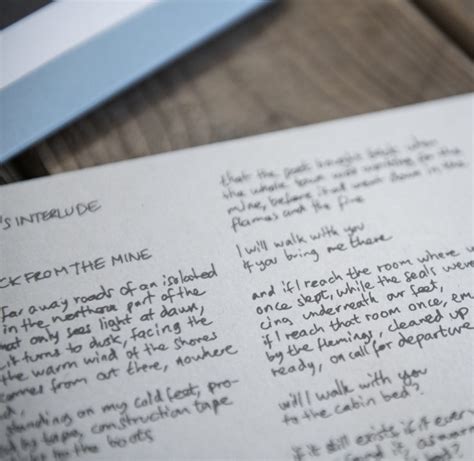 'S INTERLUDE
CK FROM THE MINE
Far away roads of an isolated
in the northern part of the
at only sees light at dawn,
it turns to dusk, facing the
the warm wind of the shores
comes from out there, nowhere
d,
standing on my cold feet, pro-
by tape, construction tape
to the boots
that the past
the whole town was working
mine, before it all went down in the
flames and the fire
I will walk with you
if you bring me there
and if I reach the room where w
once slept, while the seals were
cing underneath our feet,
if I reach that room once, en
by the flemings, cleared up
ready, on call for departure
will I walk with you
to the cabin bed?
if it still exists if it ever